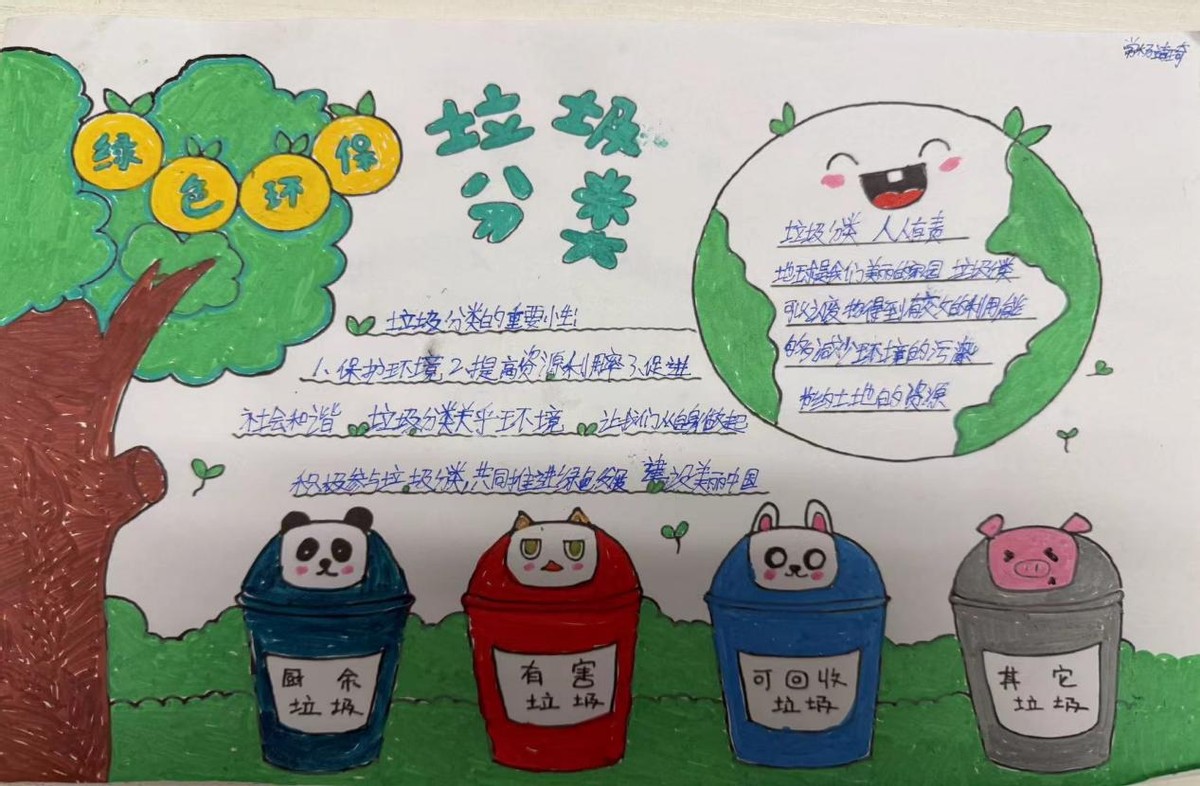 绿色环保
垃圾
分类
垃圾分类 人人有责
地球是我们美丽的家园 垃圾分类
可以以废物得到有效的利用能
够减少环境的污染
土地的资源
垃圾分类的重要性
1、保护环境 2、提高资源利用率 3、促进
社会和谐 垃圾分类关乎环境 让我们从自身做起
积极参与垃圾分类,共同推进绿色发展 建设美丽中国
厨余
垃圾
有害
垃圾
可回收
垃圾
其它
垃圾